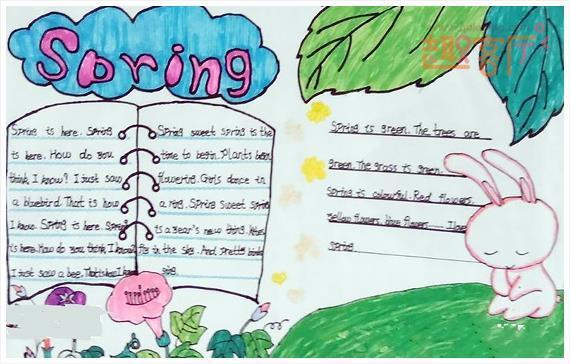 Spring
Spring is here. Spring
is here. How do you
think I know? I just saw
a bluebird. That is how
I know. Spring is here. Spring
is here. How do you think I know?
I just saw a bee. That is how I know
Spring sweet spring is the
time to begin. Plants begin
flowering. Girls dance in
a ring. Spring sweet spring
is a year's new thing. Kites
fly in the sky. And pretty birds
sing.
Spring is green. The trees are
green. The grass is green.
Spring is colourful. Red flowers.
Yellow flowers, blue flowers...... I love
spring.